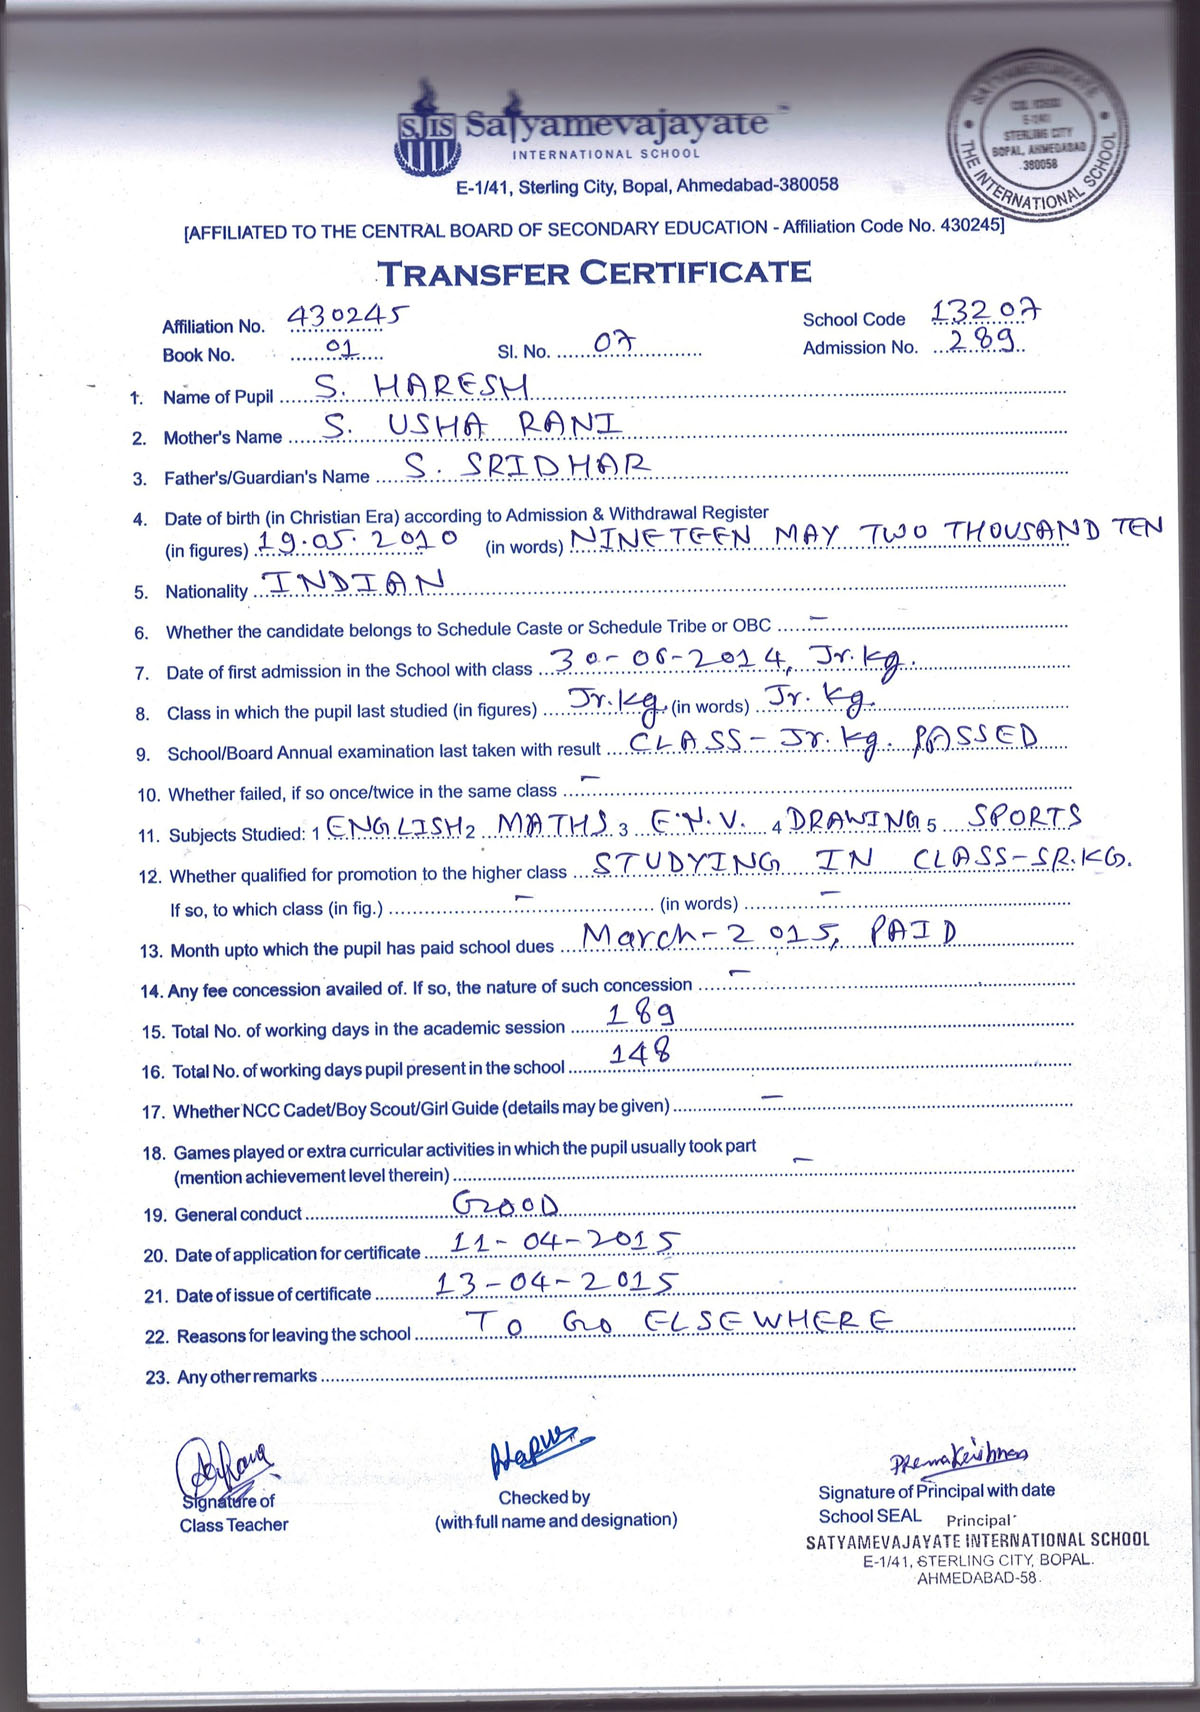 SJIS Satyamevajayate
INTERNATIONAL SCHOOL
E-1/41, Sterling City, Bopal, Ahmedabad-380058
SATYAMEVAJAYATE
E-1/41
STERLING CITY
BOPAL, AHMEDABAD
380058
THE INTERNATIONAL SCHOOL
[AFFILIATED TO THE CENTRAL BOARD OF SECONDARY EDUCATION - Affiliation Code No. 430245]
TRANSFER CERTIFICATE
Affiliation No. 430245 School Code 13207
Book No. 01 Sl. No. 07 Admission No. 289
1. Name of Pupil S. HARESH
2. Mother's Name S. USHA RANI
3. Father's/Guardian's Name S. SRIDHAR
4. Date of birth (in Christian Era) according to Admission & Withdrawal Register
(in figures) 19.05.2010 (in words) NINETEEN MAY TWO THOUSAND TEN
5. Nationality INDIAN
6. Whether the candidate belongs to Schedule Caste or Schedule Tribe or OBC -
7. Date of first admission in the School with class 30-06-2014, Jr.kg.
8. Class in which the pupil last studied (in figures) Jr.kg. (in words) Jr. kg.
9. School/Board Annual examination last taken with result CLASS - Jr. kg. PASSED
10. Whether failed, if so once/twice in the same class -
11. Subjects Studied: 1 ENGLISH 2 MATHS 3 E.N.V. 4 DRAWING 5 SPORTS
12. Whether qualified for promotion to the higher class STUDYING IN CLASS-SR.KG.
If so, to which class (in fig.) - (in words) -
13. Month upto which the pupil has paid school dues March-2015, PAID
14. Any fee concession availed of. If so, the nature of such concession -
15. Total No. of working days in the academic session 189
16. Total No. of working days pupil present in the school 148
17. Whether NCC Cadet/Boy Scout/Girl Guide (details may be given) -
18. Games played or extra curricular activities in which the pupil usually took part
(mention achievement level therein) -
19. General conduct GOOD
20. Date of application for certificate 11-04-2015
21. Date of issue of certificate 13-04-2015
22. Reasons for leaving the school TO GO ELSEWHERE
23. Any other remarks
Premakrishnan
Signature of Checked by Signature of Principal with date
Class Teacher (with full name and designation) School SEAL Principal
SATYAMEVAJAYATE INTERNATIONAL SCHOOL
E-1/41, STERLING CITY, BOPAL.
AHMEDABAD-58.